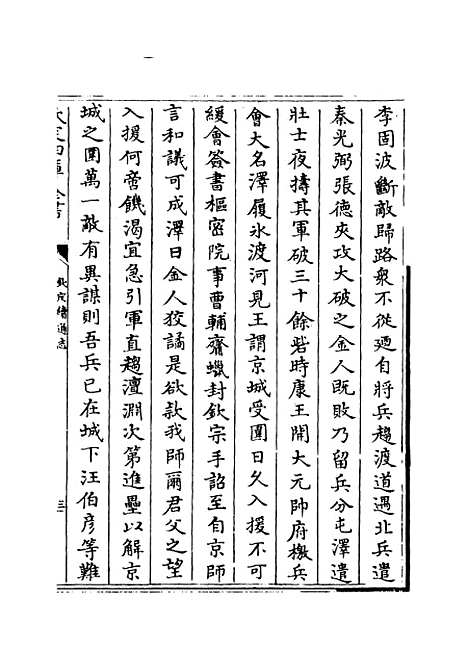 李固波斷敵歸路衆不從廼自將兵趨渡道遇北兵遣
秦光弼張德夾攻大破之金人既敗乃留兵分屯澤遣
壯士夜擣其軍破三十餘砦時康王開大元帥府檄兵
會大名澤履氷渡河見王謂京城受圍日久入援不可
緩會簽書樞密院事曹輔齎蠟封欽宗手詔至自京師
言和議可成澤曰金人狡譎是欲款我師爾君父之望
入援何啻饑渴宜急引軍直趨澶淵次第進壘以解京
城之圍萬一敵有異謀則吾兵已在城下汪伯彥等難
欽定四庫全書
欽定續通志
三